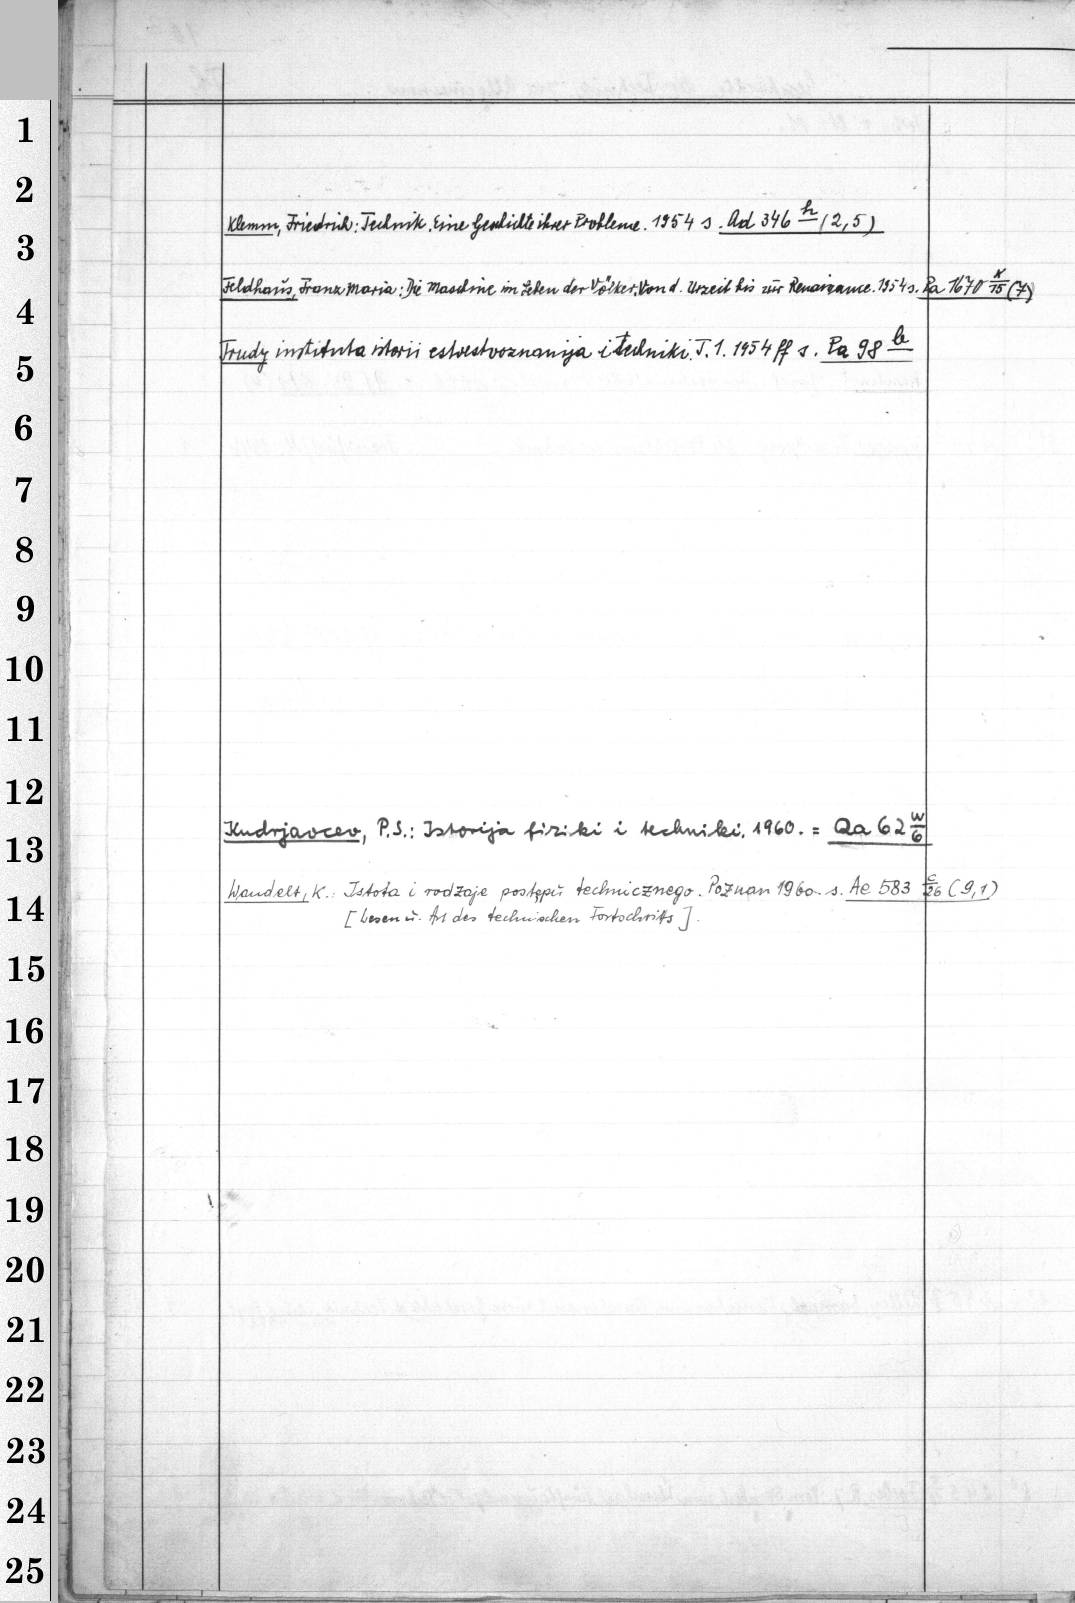 1
2
Klemm, Friedrich: Technik. Eine Geschichte ihrer Probleme. 1954 s. Ad 346 h (2,5)
3
Feldhaus, Franz Maria: Die Maschine im Leben der Völker. Von d. Urzeit bis zur Renaissance. 1954 s. Pa 1670 x/15 (7)
4
Trudy instituta istorii estestvoznanija i techniki. T. 1. 1954 ff s. Pa 98 b
5
6
7
8
9
10
11
12
Kudrjavcev, P.S.: Istorija fiziki i techniki. 1960. = Qa 62 w/6
13
Wandelt, K.: Istota i rodzaje postępu technicznego. Poznan 1960. s. Ae 583 c/26 (9,1)
14
[ u. Art des technischen Fortschritts ].
15
16
17
18
19
20
21
22
23
24
25